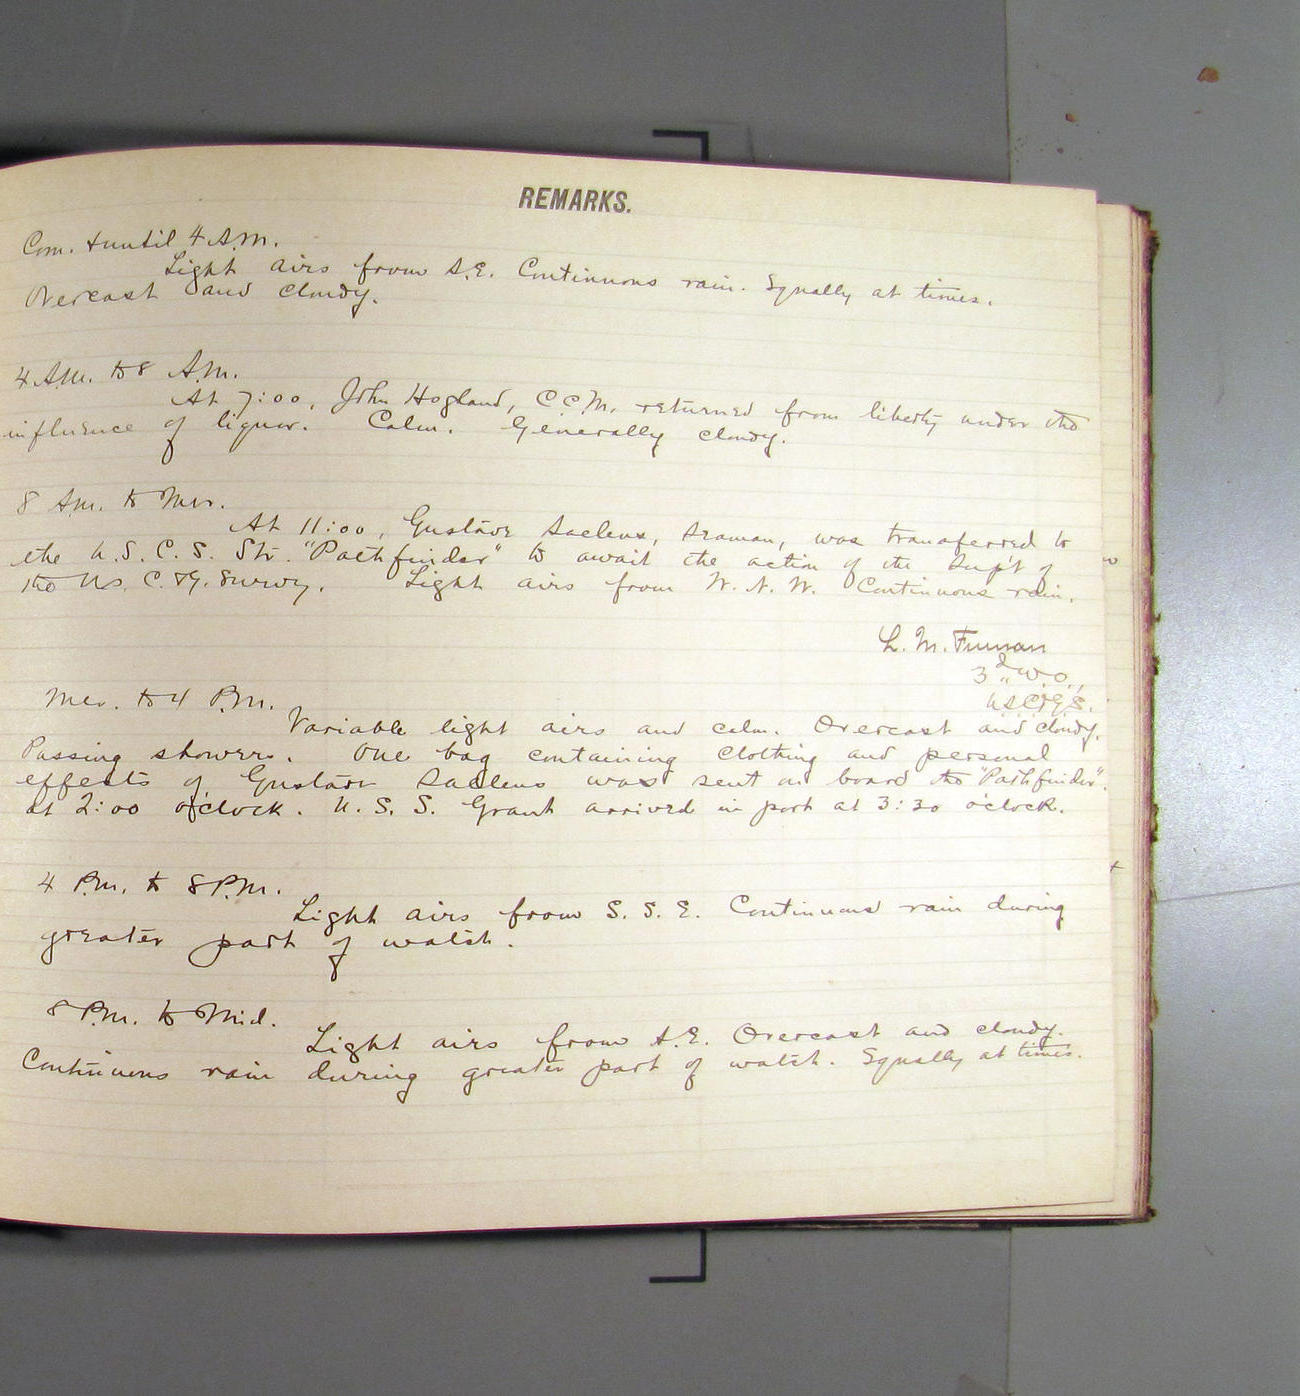 REMARKS.
Com. & until 4 A.M.
Light airs from S.E. Continuous rain. Squally at times.
Overcast and cloudy.
4 A.M. to 8 A.M.
At 7:00, John Hogland, C.C.M. returned from liberty under the
influence of liquor. Calm. Generally cloudy.
8 A.M. to Mer.
At 11:00, Gustave Saelens, Seaman, was transferred to
the U.S.C.S. Str. "Pathfinder" to await the action of the Sup't of
the U.S. C. & G. Survey. Light airs from W.N.W. Continuous rain.
L. M. Furman
3d W.O.,
U.S.C.&G.S.
Mer. to 4 P.M.
Variable light airs and calm. Overcast and cloudy.
Passing showers. One bag containing clothing and personal
effects of Gustave Saelens was sent on board the "Pathfinder"
at 2:00 o'clock. U.S.S. Grant arrived in port at 3:30 o'clock.
4 P.M. to 8 P.M.
Light airs from S.S.E. Continuous rain during
greater part of watch.
8 P.M. to Mid.
Light airs from S.E. Overcast and cloudy.
Continuous rain during greater part of watch. Squally at times.